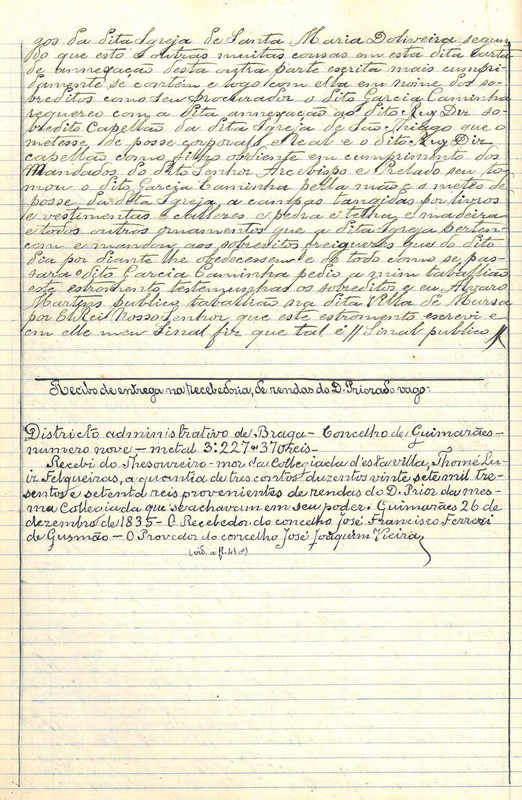 gos da dita Igreja de Santa Maria Doliveira segun
do que esto e outras muitas cousas em esta dita carta
de annexação desta outra parte escrita mais cumpri
damente se contem e logo com ella em nome dos so
breditos como seu procurador o dito Garcia Caminha
requereo com a dita annexação ao dito Ruy Diz so
bredito Capellão da dita Igreja de São Thiago que o
metesse de posse corporal e real e o dito Ruy Diz
capellão como filho obdiente em cumprimento dos
Mandados do dito Senhor Arcebispo e Prelado seu to
mou o dito Garcia Caminha pella mão e o meteo de
posse da dita Igreja, a campas tangidas por livros
e vestimentas e calleces e pedra e telha e madeira
e todos outros ornamentos que a dita Igreja perten
cem e mandou aos sobreditos freiguezes que do dito
dia por diante lhe obedecessem e de todo como se pas
sara o dito Garcia Caminha pedio a mim taballião
este estromento testemunhas os sobreditos e eu Alvaro
Martins publico taballião na dita Villa de Mursa
por ElRei Nosso Senhor que este estromento escrevi e
em elle meu Sinal fiz que tal é // Sinal publico //
Recibo de entrega na recebedoria, de rendas do D. Priorado vago:
Districto administrativo de Braga – Concelho de Guimarães –
numero nove – metal 3:227$370 reis –
Recebi do Thesoureiro-mor da Collegiada d'esta villa, Thomé Lu-
iz Felgueiras, a quantia de tres contos duzentos vinte sete mil tre-
sentos e setenta reis provenientes de rendas do D. Prior da mes-
ma Collegiada que se achavam em seu poder. Guimarães 26 de
dezembro de 1835 – O Recebedor do concelho José Francisco Ferreri
de Gusmão – O Provedor do concelho José Joaquim Vieira.
(vid. a fl. 41 v)